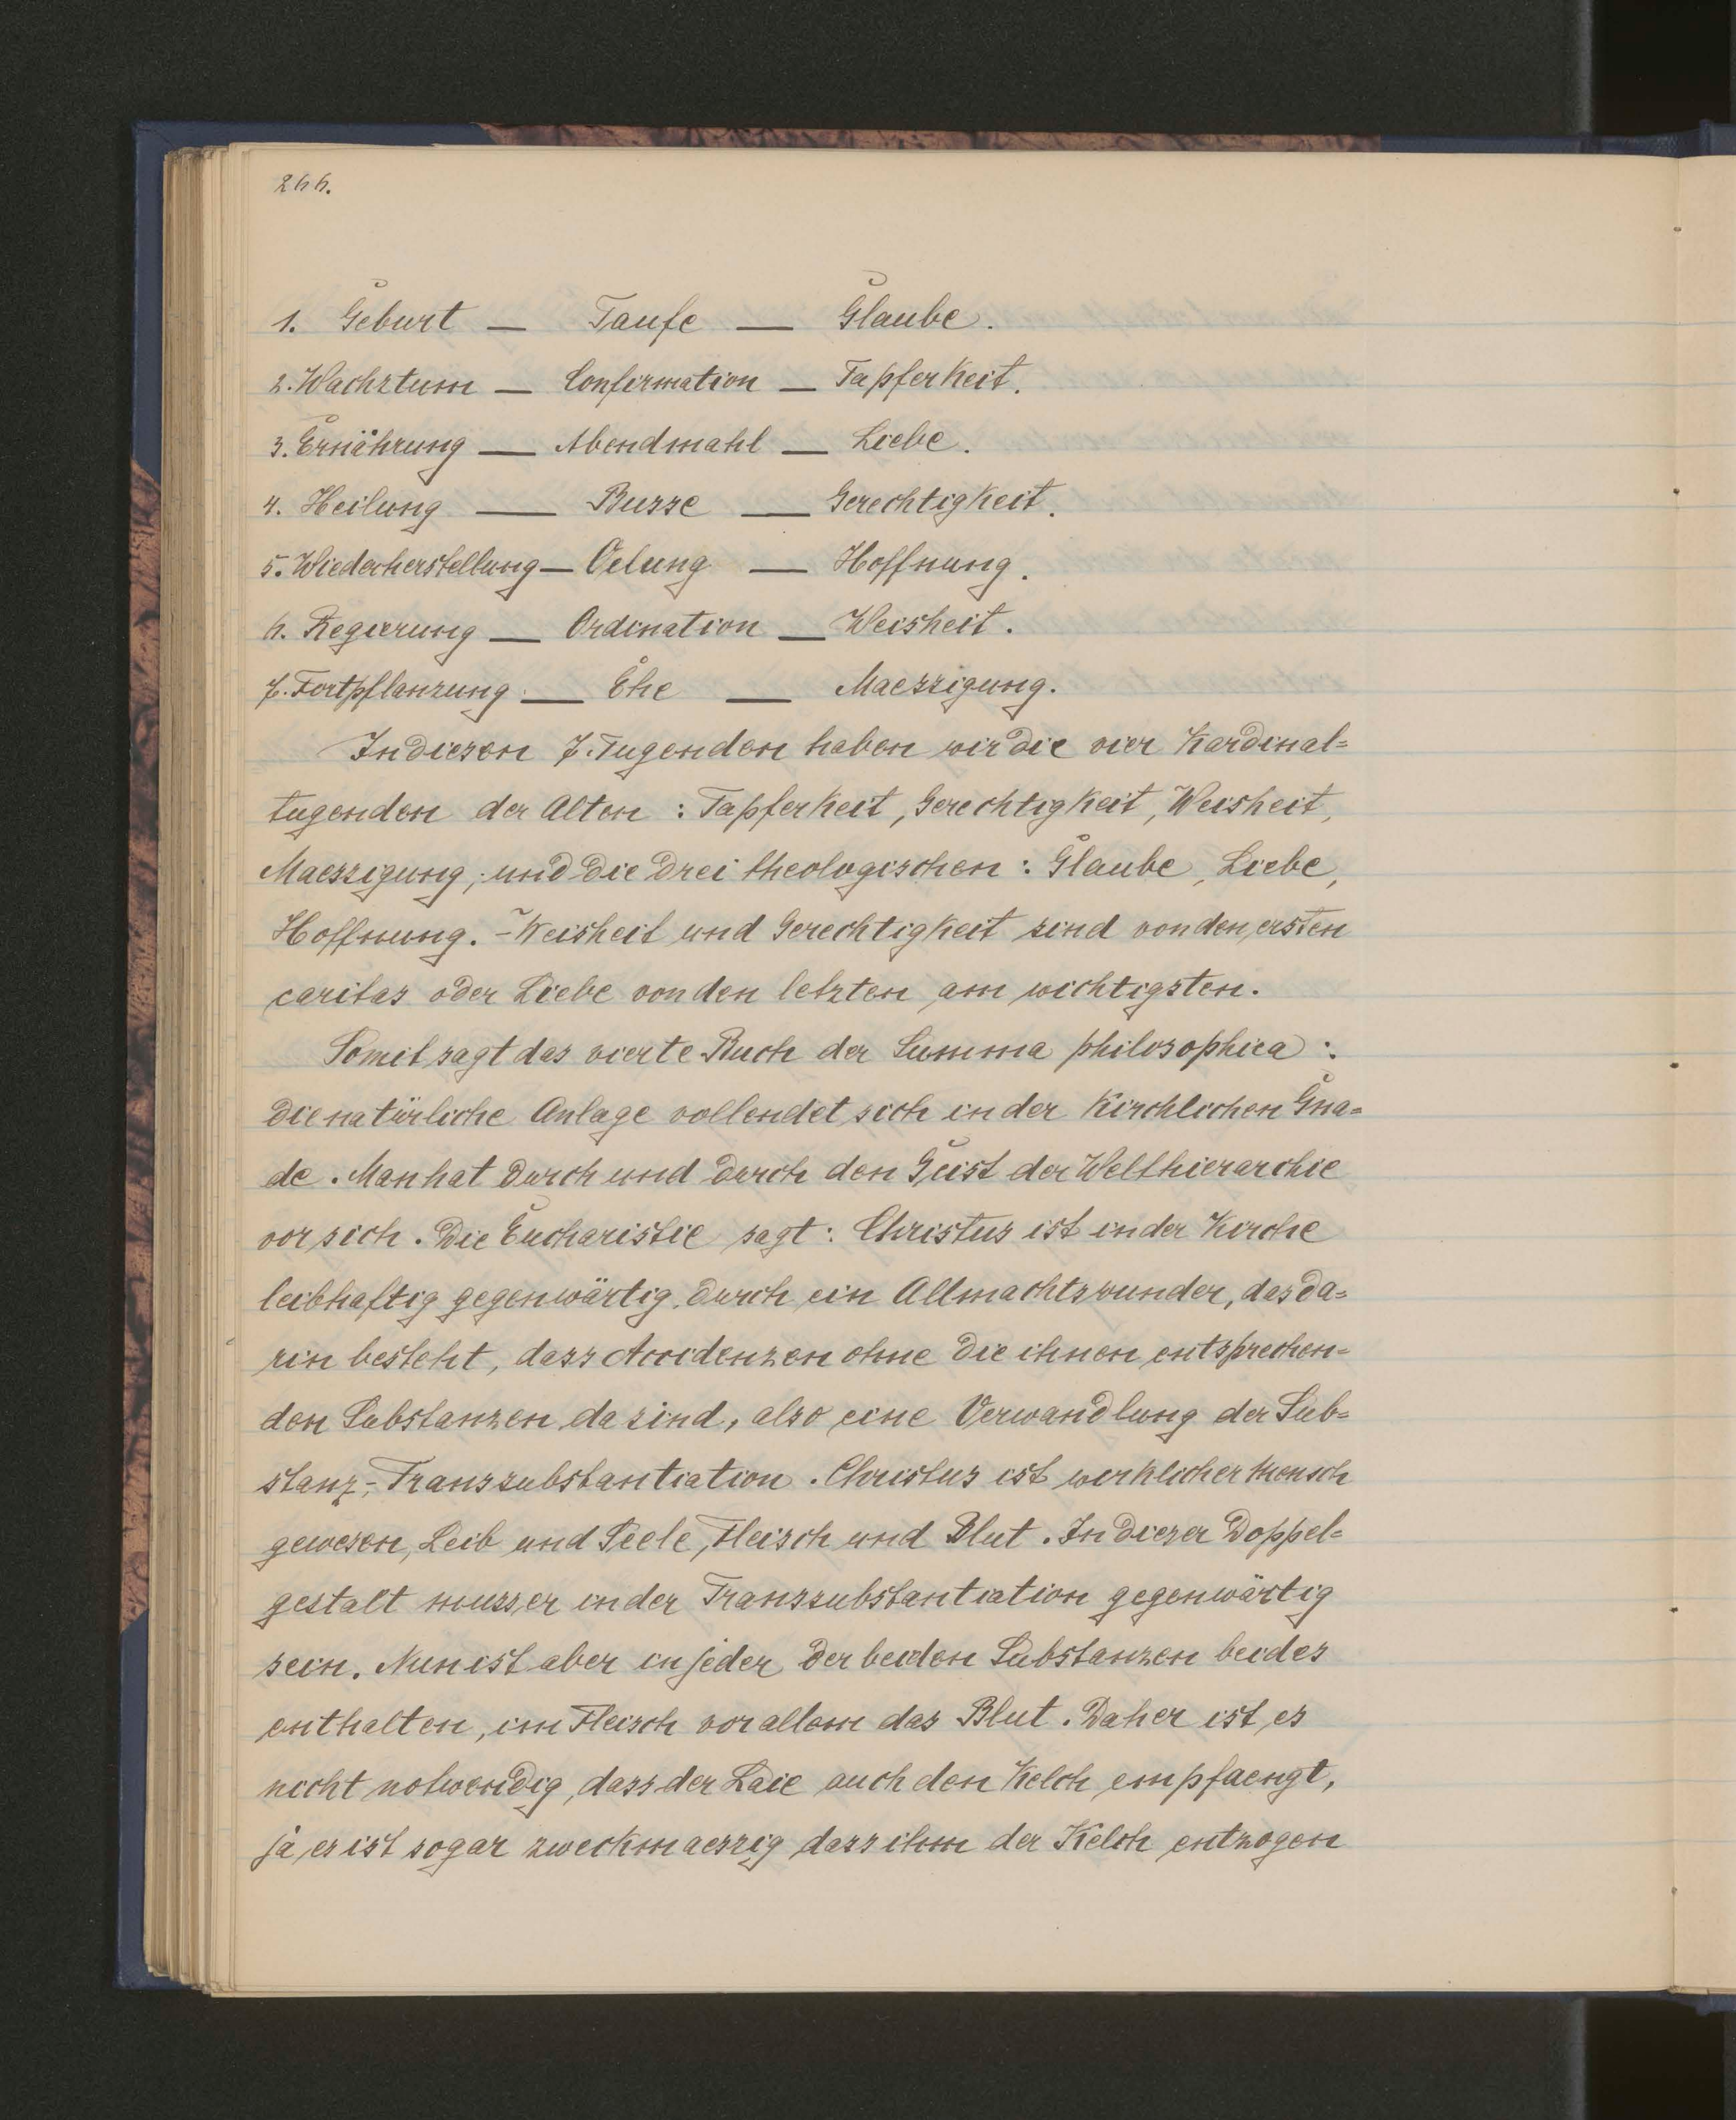 266.
1. Geburt — Taufe — Glaube.
2. Wachstum — Confirmation — Tapferkeit.
3. Ernährung — Abendmahl — Liebe.
4. Heilung — Busse — Gerechtigkeit.
5. Wiederherstellung — Oelung — Hoffnung.
6. Regierung — Ordination — Weisheit.
7. Fortpflanzung — Ehe — Maessigung.
In diesen 7. Tugenden haben wir die vier Kardinal=
tugenden der Alten : Tapferkeit, Gerechtigkeit, Weisheit,
Maessigung; und die drei theologischen : Glaube, Liebe,
Hoffnung. - Weisheit und Gerechtigkeit sind von den ersten
caritas oder Liebe von den letzten am wichtigsten.
Somit sagt das vierte Buch der Summa philosophica :
die natürliche Anlage vollendet sich in der Kirchlichen Gna=
de. Man hat durch und durch den Geist der Welthierarchie
vor sich. Die Eucharistie sagt : Christus ist in der Kirche
leibhaftig gegenwärtig durch ein Allmachtswunder, das da=
rin besteht, dass Accidenzen ohne die ihnen entsprechen=
den Substanzen da sind, also eine Verwandlung der Sub=
stanz,- Transsubstantiation. Christus ist wirklicher Mensch
gewesen, Leib und Seele, Fleisch und Blut. In dieser Doppel=
gestalt muss er in der Transsubstantiation gegenwärtig
sein. Nun ist aber in jeder der beiden Substanzen beides
enthalten, im Fleisch vor allem das Blut. Daher ist es
nicht notwendig, dass der Laie auch den Kelch empfaengt,
ja es ist sogar zweckmaessig dass ihm der Kelch entzogen